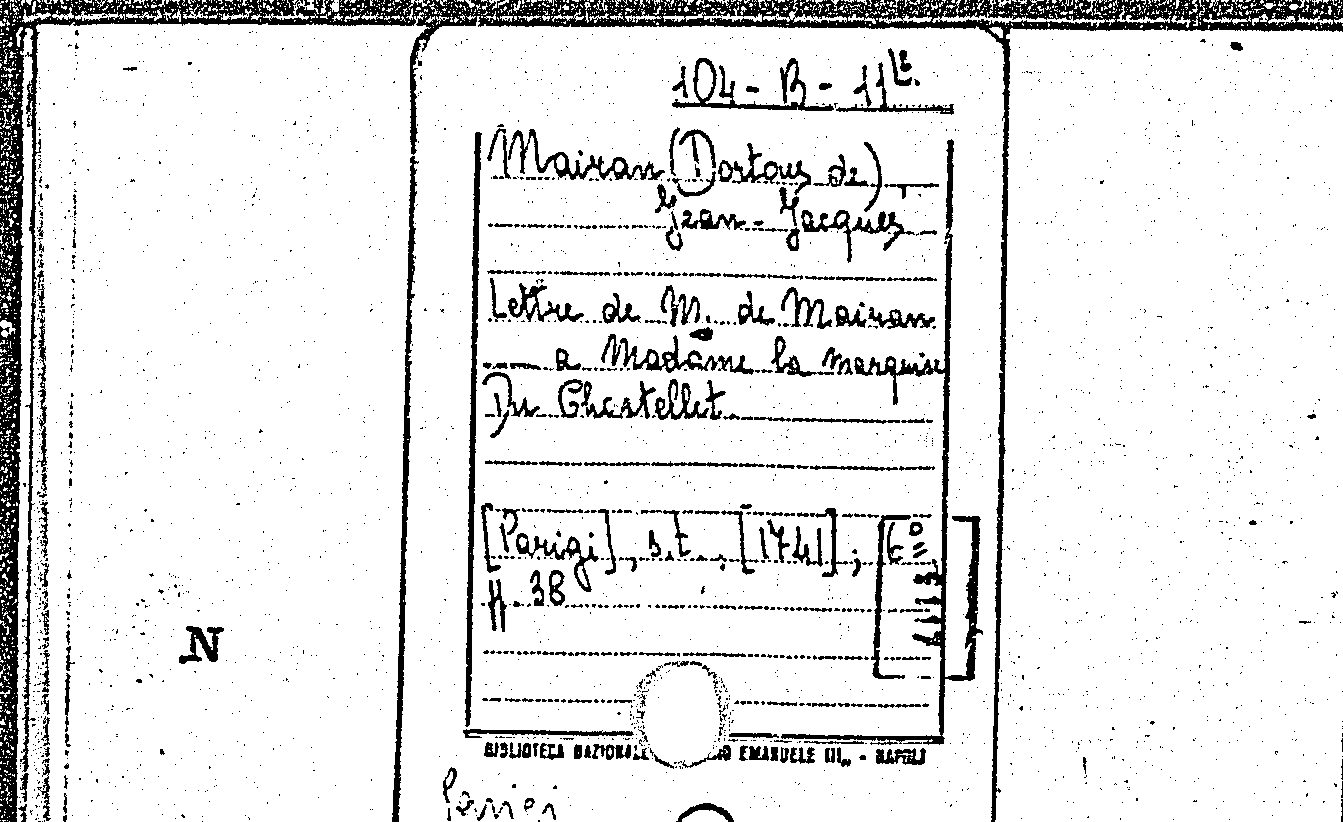 104 - B - 11
Mairan (Dortous de),
Jean-Jacques
Lettre de M. de Mairan
a Madame la marquise
Du Chastellet.
[Parigi], s.t., [1741];
ff. 38
N
BIBLIOTECA NAZIONALE EMANUELE III„ - NAPOLI
Parigi